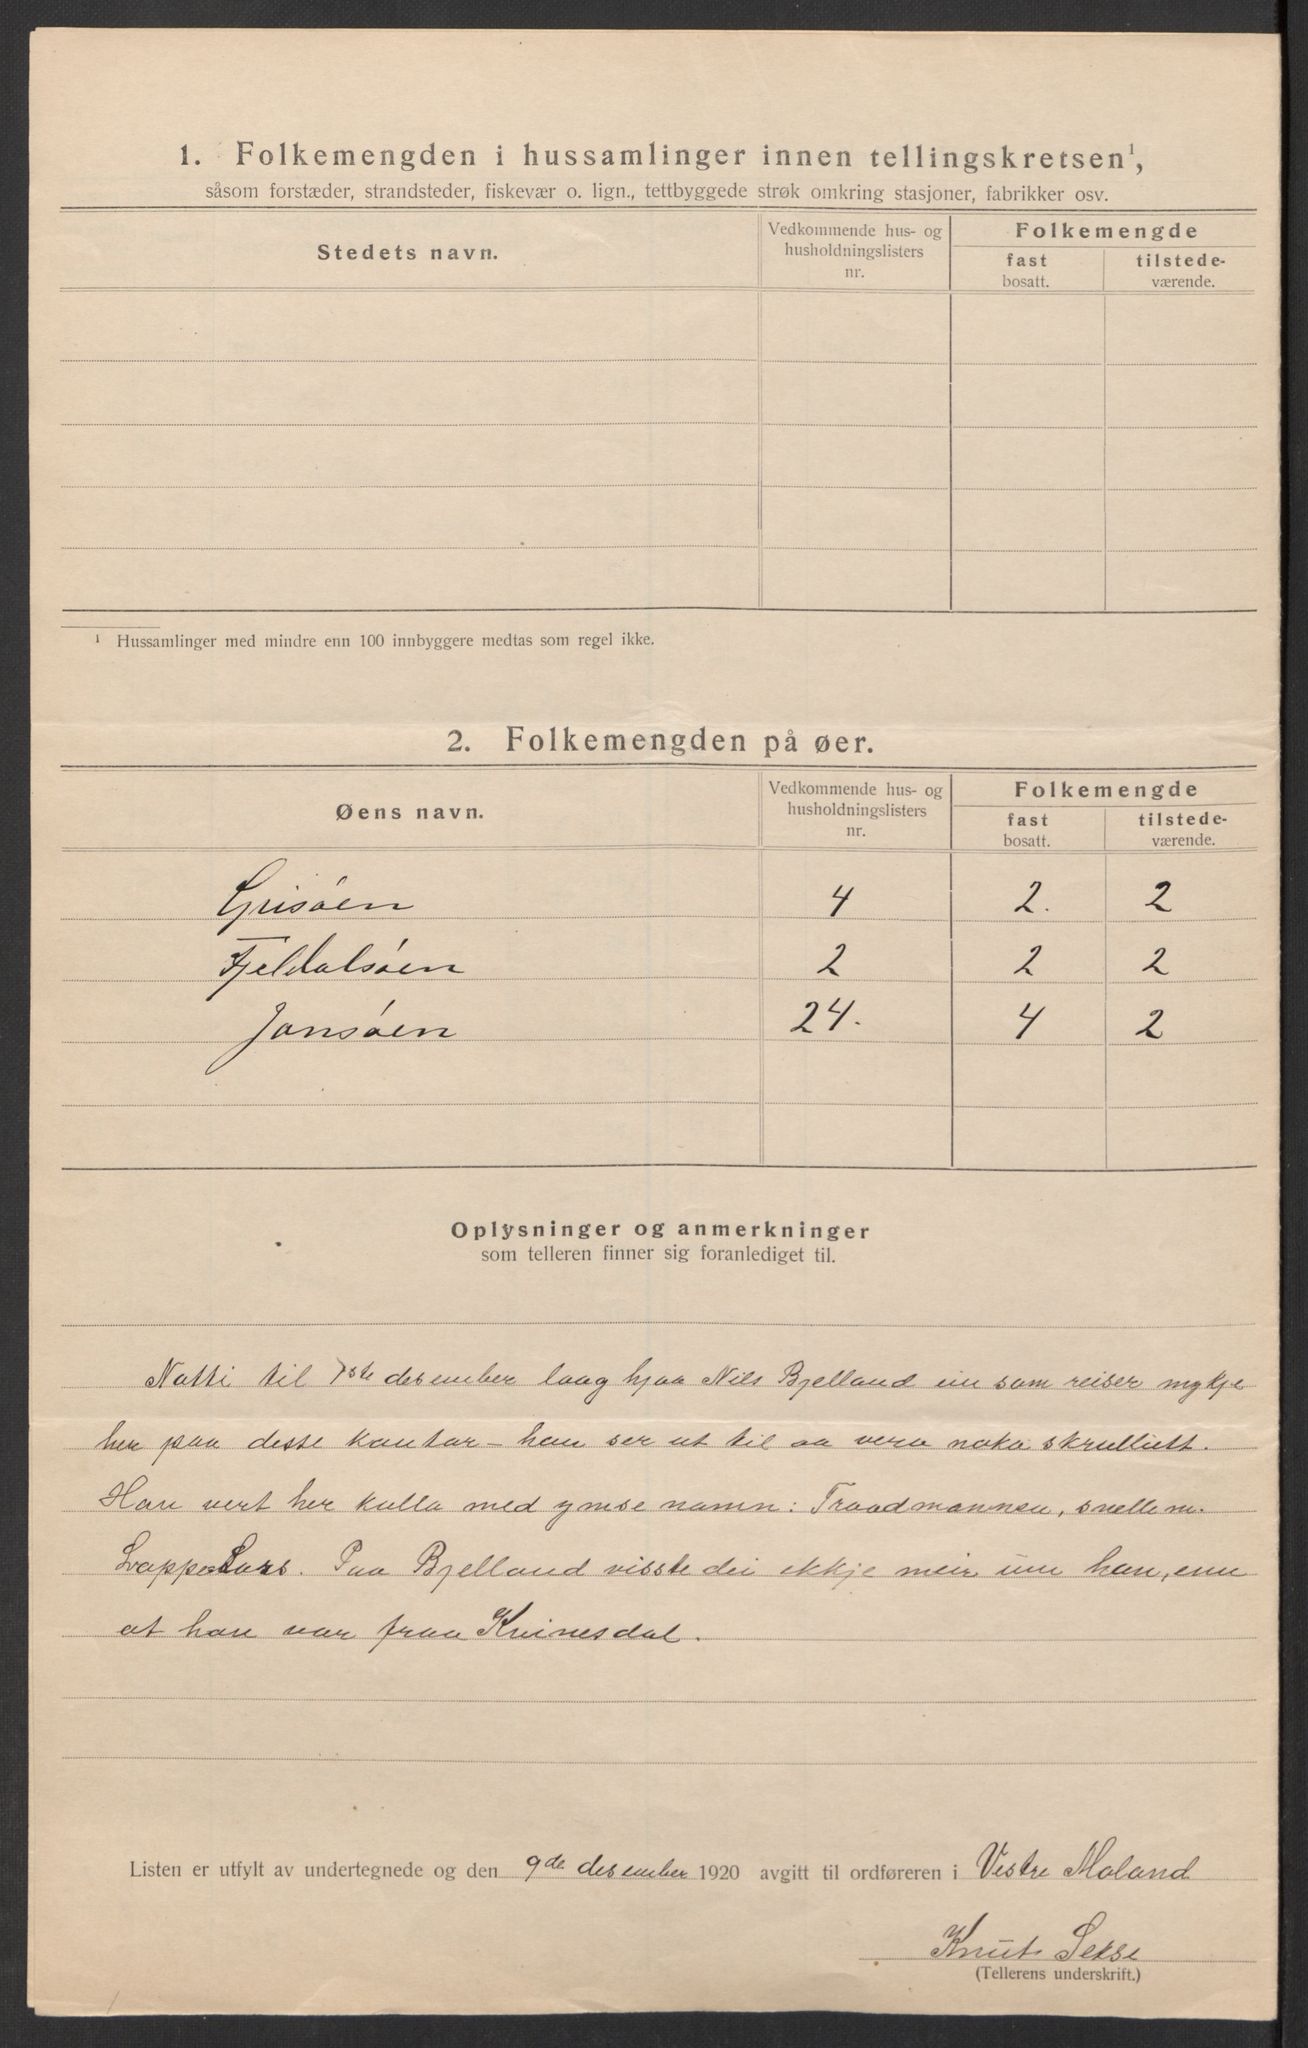 1. Folkemengden i hussamlinger innen tellingskretsen¹,
såsom forstæder, strandsteder, fiskevær o. lign., tettbyggede strøk omkring stasjoner, fabrikker osv.
Stedets navn. Vedkommende hus- og husholdningslisters nr. Folkemengde
fast bosatt. tilstede-værende.
¹ Hussamlinger med mindre enn 100 innbyggere medtas som regel ikke.
2. Folkemengden på øer.
Øens navn. Vedkommende hus- og husholdningslisters nr. Folkemengde
fast bosatt. tilstede-værende.
Grisøen 4 2. 2
Fjeldalsøen 2 2 2
Jonsøen 24. 4 2
Oplysninger og anmerkninger
som telleren finner sig foranlediget til.
Natti til 1ste desember laag hjaa Nils Bjelland ein som reiser mykje
her paa desse kantar – han ser ut til aa vera noko skrullutt.
Han vert her kalla med ymse namn: Traadmannen, snellem.
Lappe Lars. Paa Bjelland visste dei ikkje meir um han, enn
at han var fraa Kvinesdal.
Listen er utfylt av undertegnede og den 9de desember 1920 avgitt til ordføreren i Vestre Moland
Knut Sekse
(Tellerens underskrift.)